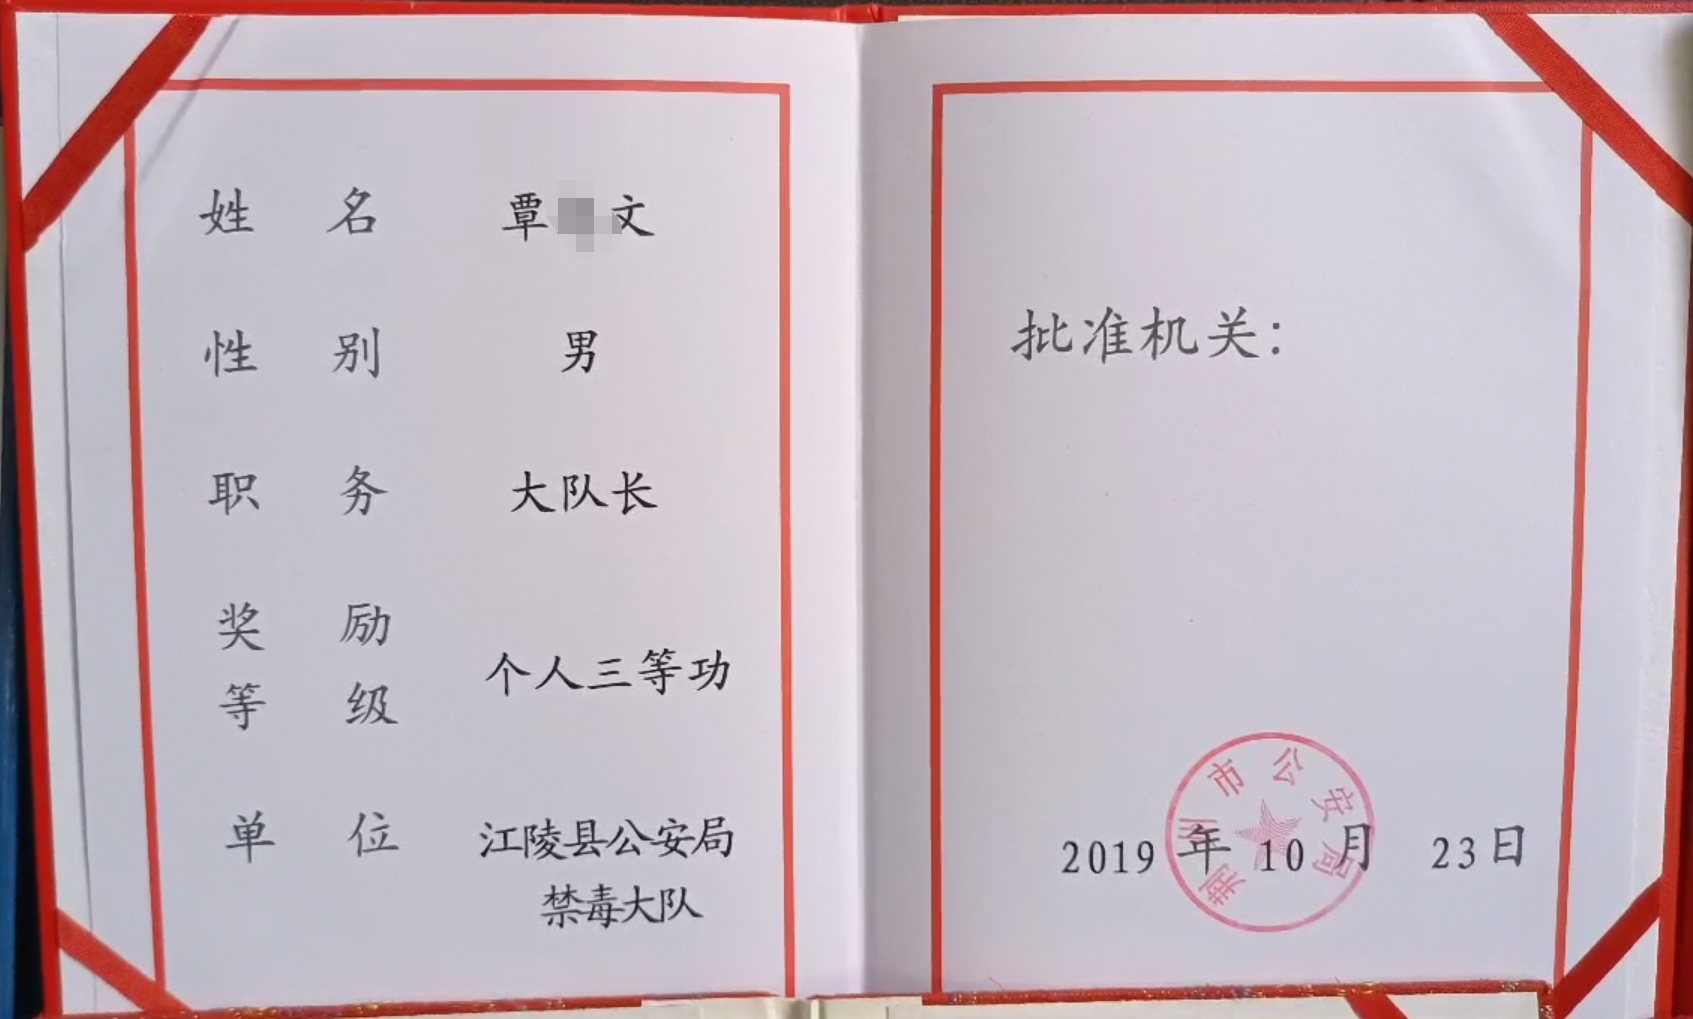 姓 名 覃 文
性 别 男
职 务 大队长
奖 励
等 级
个人三等功
单 位 江陵县公安局
禁毒大队
批准机关：
荆州市公安局
2019 年 10 月 23日